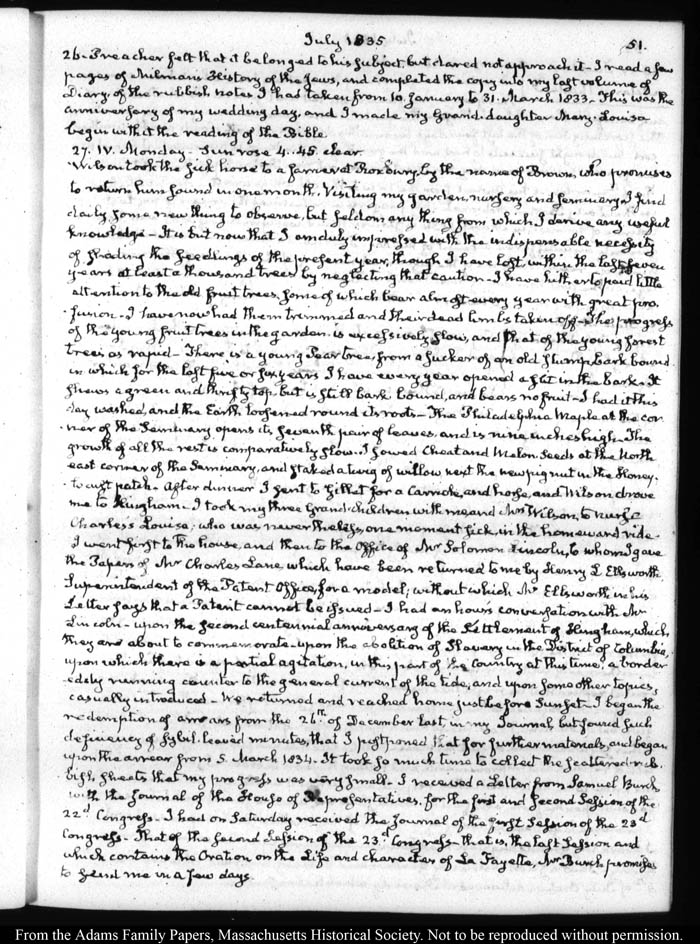 July 1835
51.
26. Preacher felt that it belonged to his subject, but dared not approach it. I read a few
pages of Milman's History of the Jews, and completed the copy into my last volume of
Diary, of the rubbish notes I had taken from 10. January to 31. March 1833. This was the
anniversary of my wedding day, and I made my Grand-daughter Mary-Louisa
begin with it the reading of the Bible.
27. IV. Monday. Sun rose 4.45. clear.
Wilson took the sick horse to a farrier at Roxbury, by the name of Brown, who promises
to return him sound in one month. Visiting my garden, nursery and seminary I find
daily some new thing to observe, but seldom any thing from which I derive any useful
knowledge. It is but now that I am duly impressed with the indispensable necessity
of shading the seedlings of the present year, though I have lost within the last seven
years at least a thousand trees by neglecting that caution. I have hitherto paid little
attention to the old fruit trees, some of which bear almost every year with great pro-
fusion. I have now had them trimmed and their dead limbs taken off. The progress
of the young fruit trees in the garden is excessively slow, and that of the young forest
trees as rapid. There is a young Pear tree, from a sucker of an old stump, bark bound
in which for the last five or six years I have every year opened a slit in the bark. It
shews a green and thrifty top but is still bark bound, and bears no fruit. I had it this
day washed, and the Earth loosened round its roots. The Philadelphia Maple at the cor-
ner of the Seminary opens its seventh pair of leaves, and is nine inches high. The
growth of all the rest is comparatively slow. I sowed Cheat and Melon Seeds at the North
east corner of the Seminary, and staked a twig of willow next the new pig nut in the Honey-
locust patch. After dinner I sent to Gillet for a Carriole, and horse, and Wilson drove
me to Hingham. I took my three Grand-Children with me and Mrs Wilson, to nurse
Charles's Louisa; who was nevertheless, one moment sick, in the homeward ride.
I went first to the house, and then to the Office of Mr Solomon Lincoln, to whom I gave
the Papers of Mr Charles Lane, which have been returned to me by Henry L Ellsworth
Superintendent of the Patent Office, for a model; without which Mr Ellsworth in his
Letter says that a Patent cannot be issued. I had an hour's conversation with Mr
Lincoln upon the second centennial anniversary of the Settlement of Hingham, which
they are about to commemorate upon the abolition of Slavery in the District of Columbia,
upon which there is a partial agitation, in this part of the Country at this time, a border
eddy running counter to the general current of the tide, and upon some other topics,
casually introduced. We returned and reached home just before Sunset. I began the
redemption of arrears from the 26th of December last in my Journal, but found such
deficiency of Sybil-leaved minutes, that I postponed that for further materials, and began
upon the arrear from 5. March 1834. It took so much time to collect the scattered rub-
bish sheets that my progress was very small. I received a Letter from Samuel Burch
with the Journal of the House of Representatives, for the first and second Session of the
22d Congress. I had on Saturday received the Journal of the first Session of the 23d
Congress. That of the second Session of the 23d Congress, that is, the last Session and
which contains the Oration on the Life and character of La Fayette, Mr Burch promises
to send me in a few days.
From the Adams Family Papers, Massachusetts Historical Society. Not to be reproduced without permission.